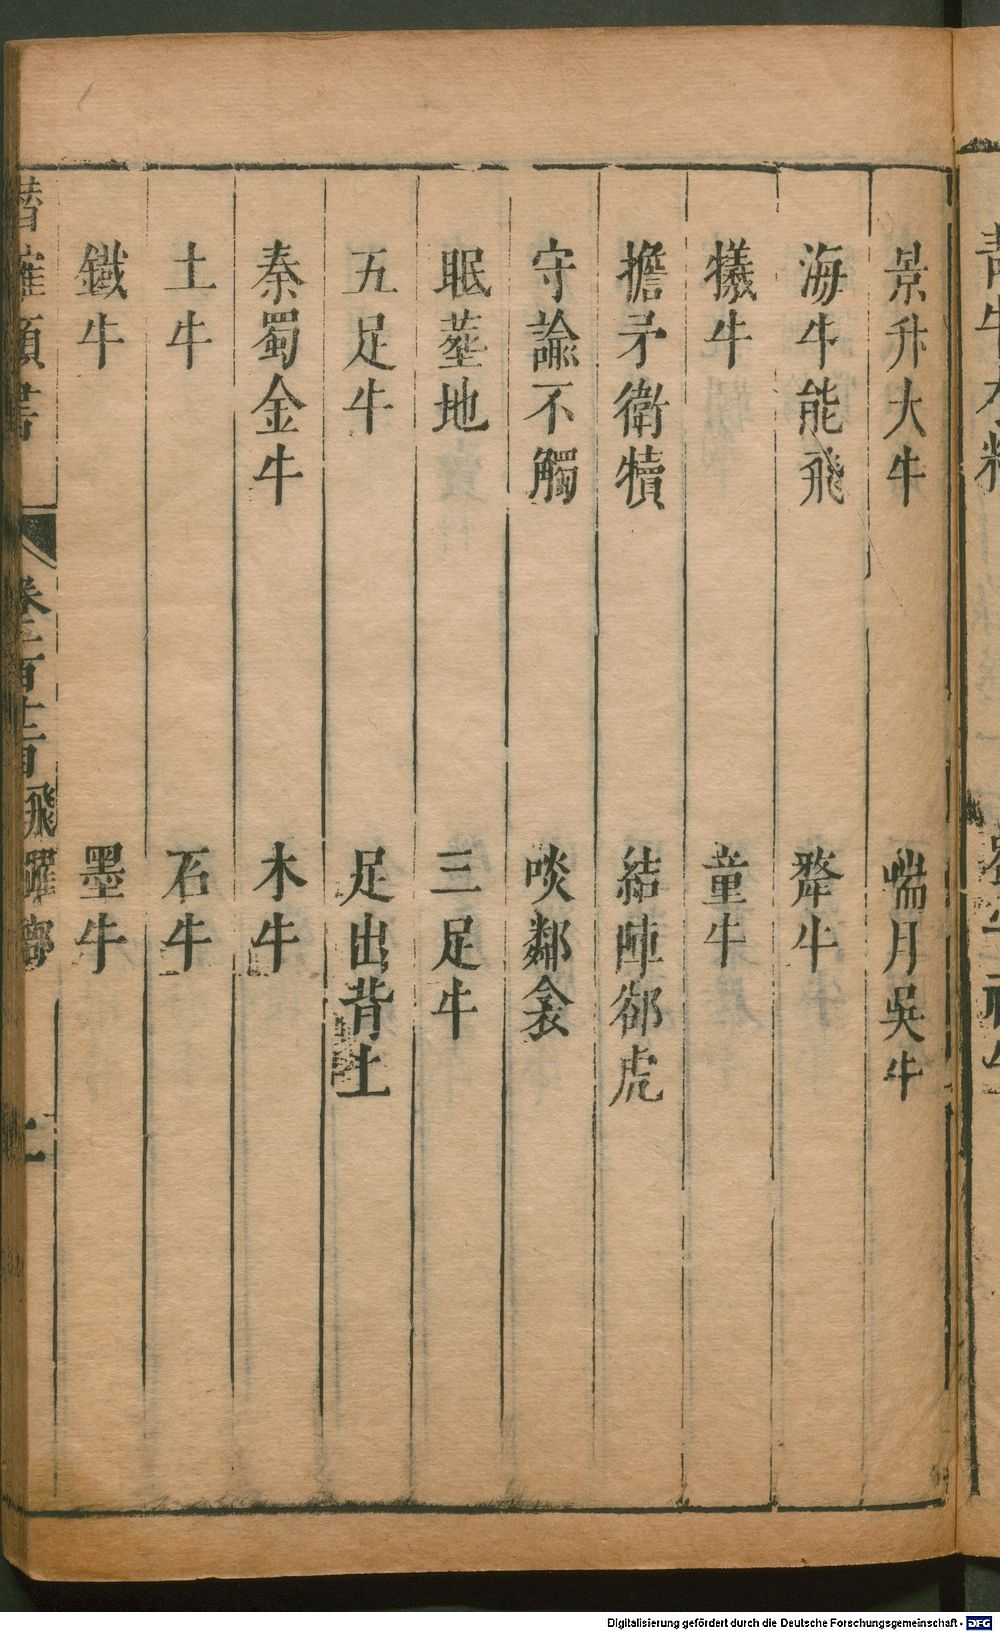 景升大牛 喘月吳牛
海牛能飛 犂牛
犧牛 童牛
擔矛衛犢 結陣郤虎
守諭不觸 啖鄰衾
眠塟地 三足牛
五足牛 足出背上
秦蜀金牛 木牛
土牛 石牛
鐵牛 墨牛
潛確類書 卷一百十一目 飛躍部
Digitalisierung gefördert durch die Deutsche Forschungsgemeinschaft - DFG